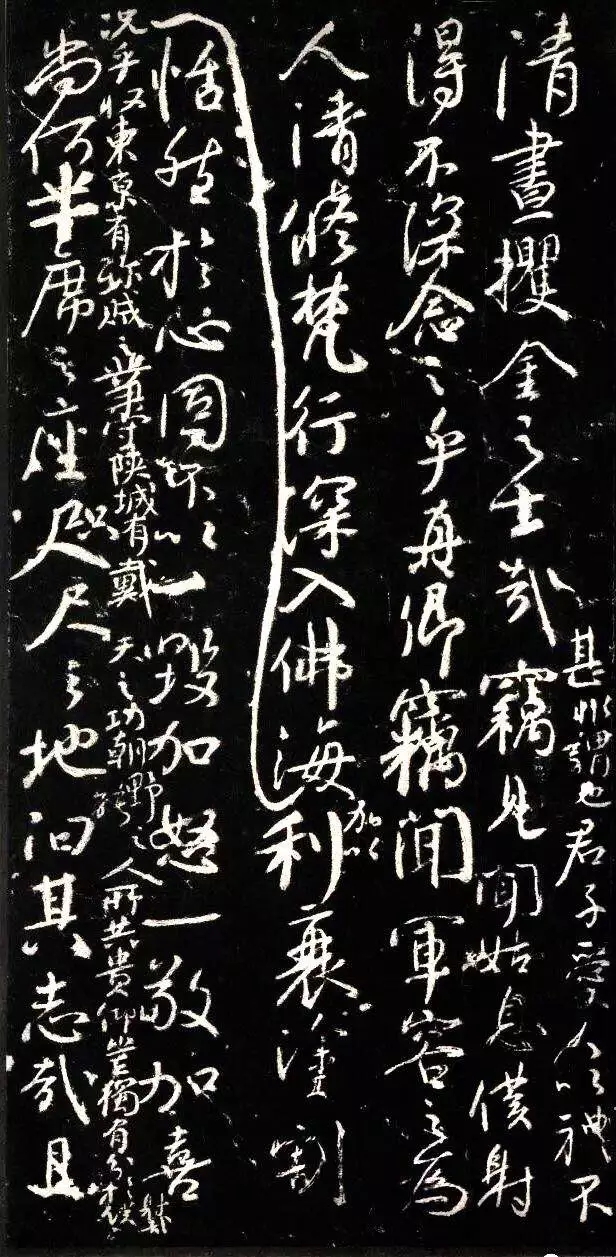 甚非謂也君子愛人以禮不
清晝攫金之士哉竊見聞姑息僕射
得不深念之乎真卿竊聞軍容之為
人清修梵行深入佛海加以利衰塗割
恬然於心固不以一毀加怒一敬加喜
況乎收東京有殄賊之業守陝城有戴天之功朝野之人所共貴仰豈獨有分於僕射哉
尚何半席之座咫尺之地汩其志哉且